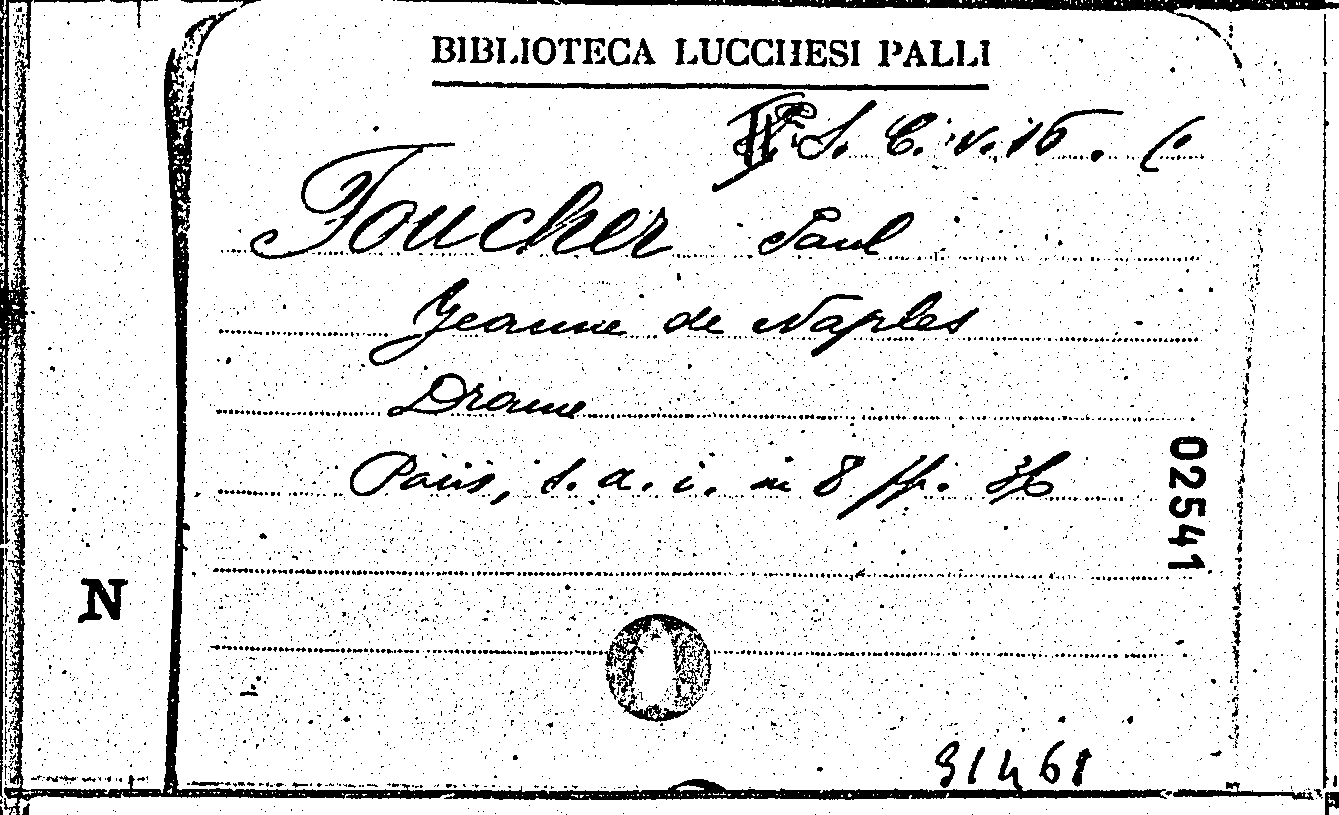 BIBLIOTECA LUCCHESI PALLI
S. C. v. 15. (.
Foucher Paul
Jeanne de Naples
Drame
Paris, s. a. i. in 8 pp. 36
02541
N
91461